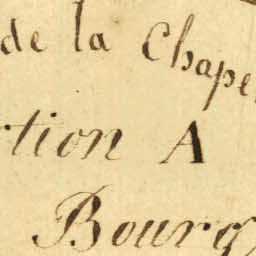 de la Chape
tion A
Bourg